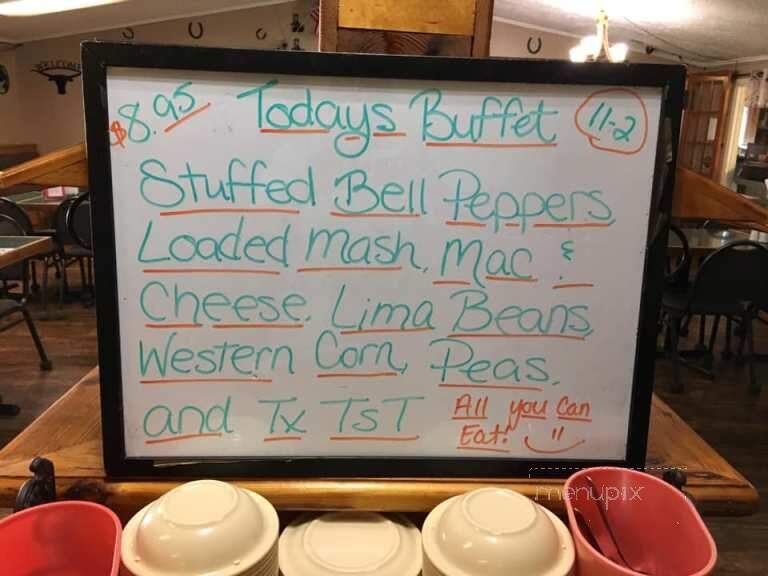 WELCOME
$8.95 Todays Buffet 11-2
Stuffed Bell Peppers,
Loaded Mash, Mac &
Cheese, Lima Beans,
Western Corn, Peas,
and Tx TsT All you Can
Eat!
menupix